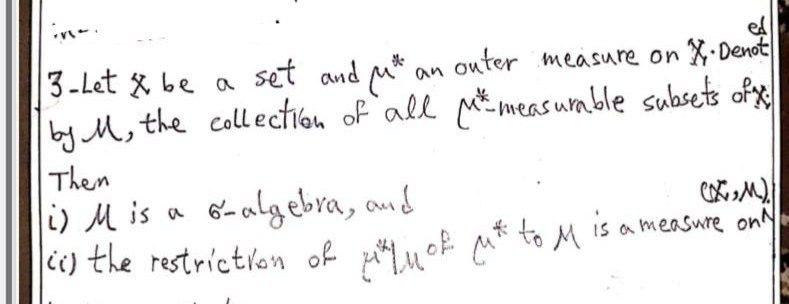 3-Let X be a set and μ* an outer measure on X. Denoted
by M, the collection of all μ*-measurable subsets of X.
Then
i) M is a σ-algebra, and
ii) the restriction of μ*|M of μ* to M is a measure on (X, M).